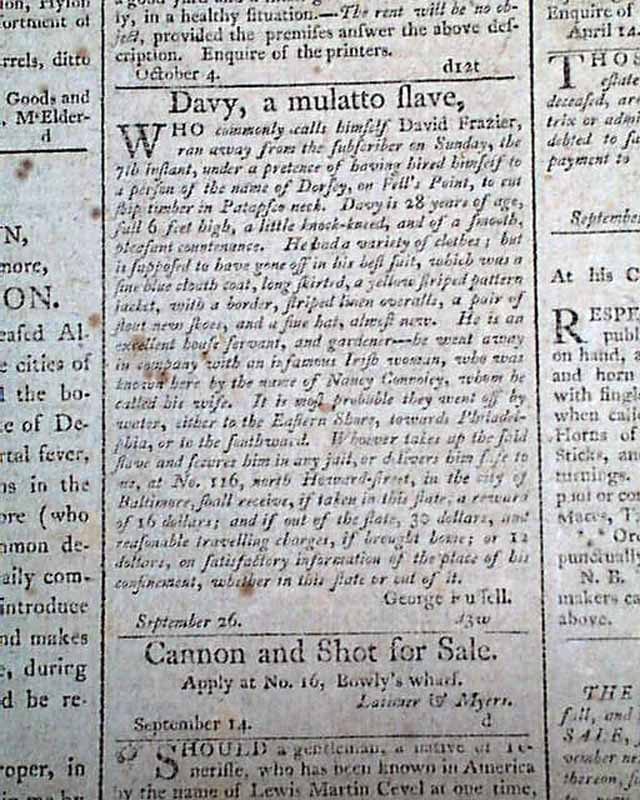 ion, Hyson
fortment of
rrels, ditto
Goods and
M'Elder-
d
WN,
more,
ON.
eased Al-
e cities of
d the bo-
te of De-
rtal fever,
ns in the
ore (who
mmon de-
aily com-
introduce
nd makes
e, during
d be re-
roper, in
ly, in a healthy situation.—The rent will be no ob-
ject, provided the premises answer the above des-
cription. Enquire of the printers.
October 4. d12t
Davy, a mulatto slave,
WHO commonly calls himself David Frazier,
ran away from the subscriber on Sunday, the
7th instant, under a pretence of having hired himself to
a person of the name of Dorsey, on Fell's Point, to cut
ship timber in Patapsco neck. Davy is 28 years of age,
full 6 feet high, a little knock-kneed, and of a smooth,
pleasant countenance. He had a variety of clothes; but
is supposed to have gone off in his best suit, which was a
fine blue cloath coat, long skirted, a yellow striped pattern
jacket, with a border, striped linen overalls, a pair of
stout new shoes, and a fine hat, almost new. He is an
excellent house servant, and gardener—he went away
in company with an infamous Irish woman, who was
known here by the name of Nancy Connoicy, whom he
called his wife. It is most probable they went off by
water, either to the Eastern Shore, towards Philadel-
phia, or to the southward. Whoever takes up the said
slave and secures him in any jail, or delivers him safe to
me, at No. 116, north Howard-street, in the city of
Baltimore, shall receive, if taken in this state, a reward
of 16 dollars; and if out of the state, 30 dollars, and
reasonable travelling charges, if brought home; or 12
dollars, on satisfactory information of the place of his
confinement, whether in this state or out of it.
George Russell.
September 26. d3w
Cannon and Shot for Sale.
Apply at No. 16, Bowly's wharf.
Latimer & Myers.
September 14. d
SHOULD a gentleman, a native of Te-
nerisse, who has been known in America
by the name of Lewis Martin Cevel at one time,
Enquire of
April 14.
THOS
estate
deceased, ar
trix or admi
debted to sa
payment to
September
At his C
RESPE
publ
on hand, a
and horn
with single
when calle
Horns of
Sticks, and
turnings.
pital or co
Maces, T
Ord
punctually
N. B.
makers ca
above.
THE
fall, and
SALE,
vember ne
thereon,